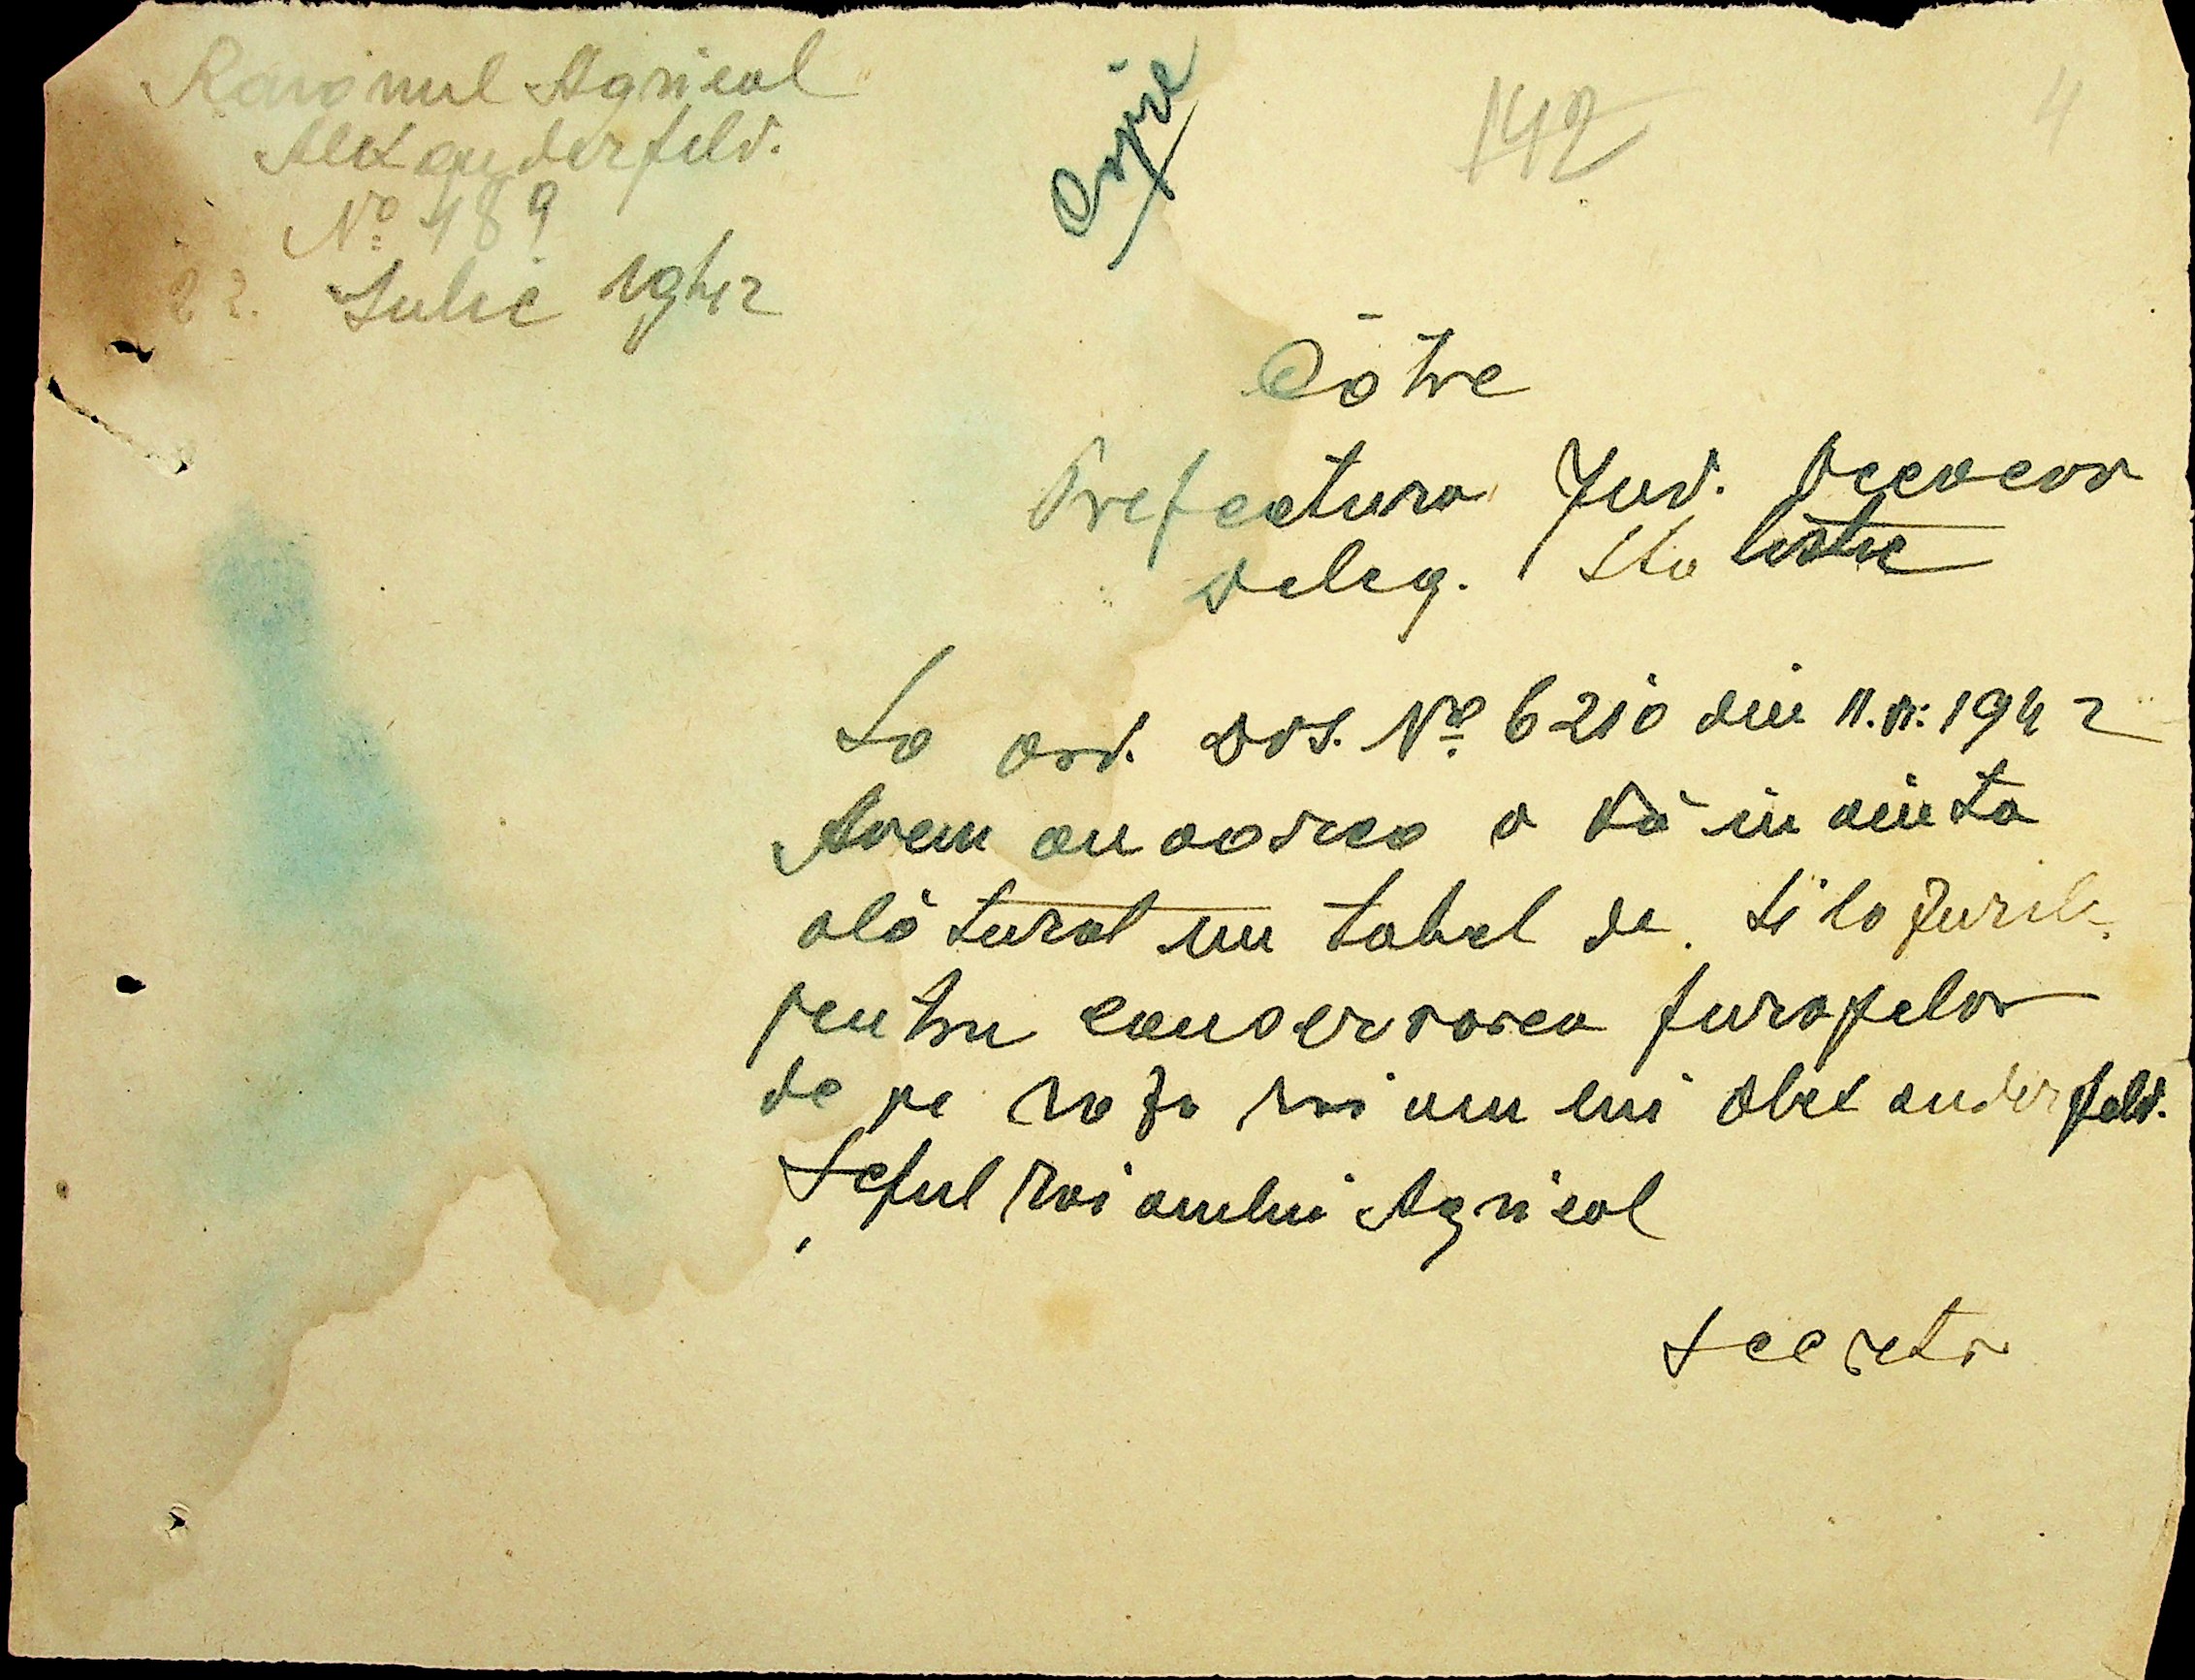 Raionul Agricol
Alexanderfeld.
Nº 489
22. Iulie 1942
Copie
142
4
Către
Prefectura Jud.
Deleg. Statistic
La ord. Dvs. Nº 6210 din 11.VI.1942
Avem onoarea a Vă inainta
alăturat un tabel de silozurile
pentru conservarea furajelor
de pe raza raionului Alexanderfeld.
Șeful Raionului Agricol
Secretar